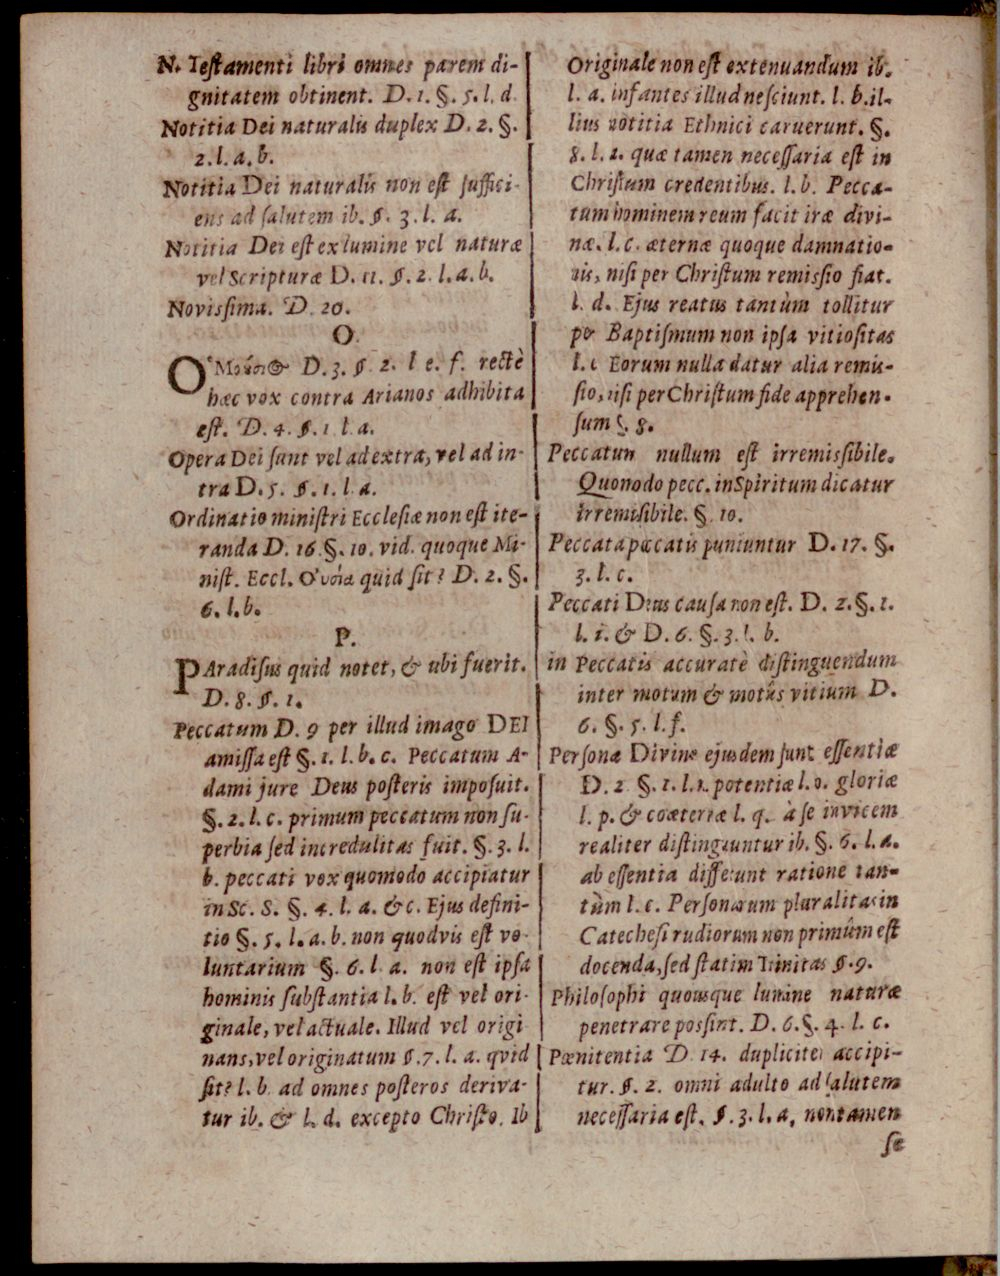 N. Testamenti libri omnes parem di-
gnitatem obtinent. D. 1. §. 5. l. d.
Notitia Dei naturalis duplex D. 2. §.
2. l. a. b.
Notitia Dei naturalis non est suffici-
ens ad salutem ib. §. 3. l. a.
Notitia Dei est ex lumine vel naturæ
vel Scripturæ D. 11. §. 2. l. a. b.
Novissima. D. 20.
O.
Ὁμούσι⊙ D. 3. §. 2. l e. f. rectè
hæc vox contra Arianos adhibita
est. D. 4. §. 1 l a.
Opera Dei sunt vel ad extra, vel ad in-
tra D. 5. §. 1. l a.
Ordinatio ministri Ecclesiæ non est ite-
randa D. 16 §. 10. vid. quoque Mi-
nist. Eccl. Οὐσία quid sit? D. 2. §.
6. l. b.
P.
PAradisus quid notet, & ubi fuerit.
D. 8. §. 1.
Peccatum D. 9 per illud imago DEI
amissa est §. 1. l. b. c. Peccatum A-
dami jure Deus posteris imposuit.
§. 2. l. c. primum peccatum non su-
perbia sed incredulitas fuit. §. 3. l.
b. peccati vox quomodo accipiatur
in Sc. S. §. 4. l. a. & c. Ejus defini-
tio §. 5. l. a. b. non quodvis est vo-
luntarium §. 6. l a. non est ipsa
hominis substantia l. b. est vel ori-
ginale, vel actuale. Illud vel origi
nans, vel originatum §. 7. l. a. qvid
sit? l. b. ad omnes posteros deriva-
tur ib. & l. d. excepto Christo. Ib
Originale non est extenuandum ib.
l. a. infantes illud nesciunt. l. b. il-
lius notitia Ethnici caruerunt. §.
8. l. 1. quæ tamen necessaria est in
Christum credentibus. l. b. Pecca-
tum hominem reum facit iræ divi-
næ. l. c. æternæ quoque damnatio-
nis, nisi per Christum remissio fiat.
l. d. Ejus reatus tantùm tollitur
per Baptismum non ipsa vitiositas
l. e Eorum nulla datur alia remis-
sio, nisi per Christum fide apprehen-
sum §. 8.
Peccatum nullum est irremissibile.
Quomodo pecc. in Spiritum dicatur
irremisibile. §. 10.
Peccata peccatis puniuntur D. 17. §.
3. l. c.
Peccati Deus causa non est. D. 2. §. 1.
l. i. & D. 6. §. 3. l. b.
in Peccatis accuratè distinguendum
inter motum & motûs vitium D.
6. §. 5. l. f.
Personæ Divinæ ejusdem sunt essentiæ
D. 2 §. 1. l. n. potentiæ l. o. gloriæ
l. p. & coæternæ l. q. à se invicem
realiter distinguuntur ib. §. 6. l. a.
ab essentia differunt ratione tan-
tùm l. c. Personarum pluralitas in
Catechesi rudiorum non primûm est
docenda, sed statim Trinitas §. 9.
Philosophi quousque lumine naturæ
penetrare possint. D. 6. §. 4. l. c.
Pœnitentia D. 14. dupliciter accipi-
tur. §. 2. omni adulto ad salutem
necessaria est. §. 3. l. a, non tamen
se